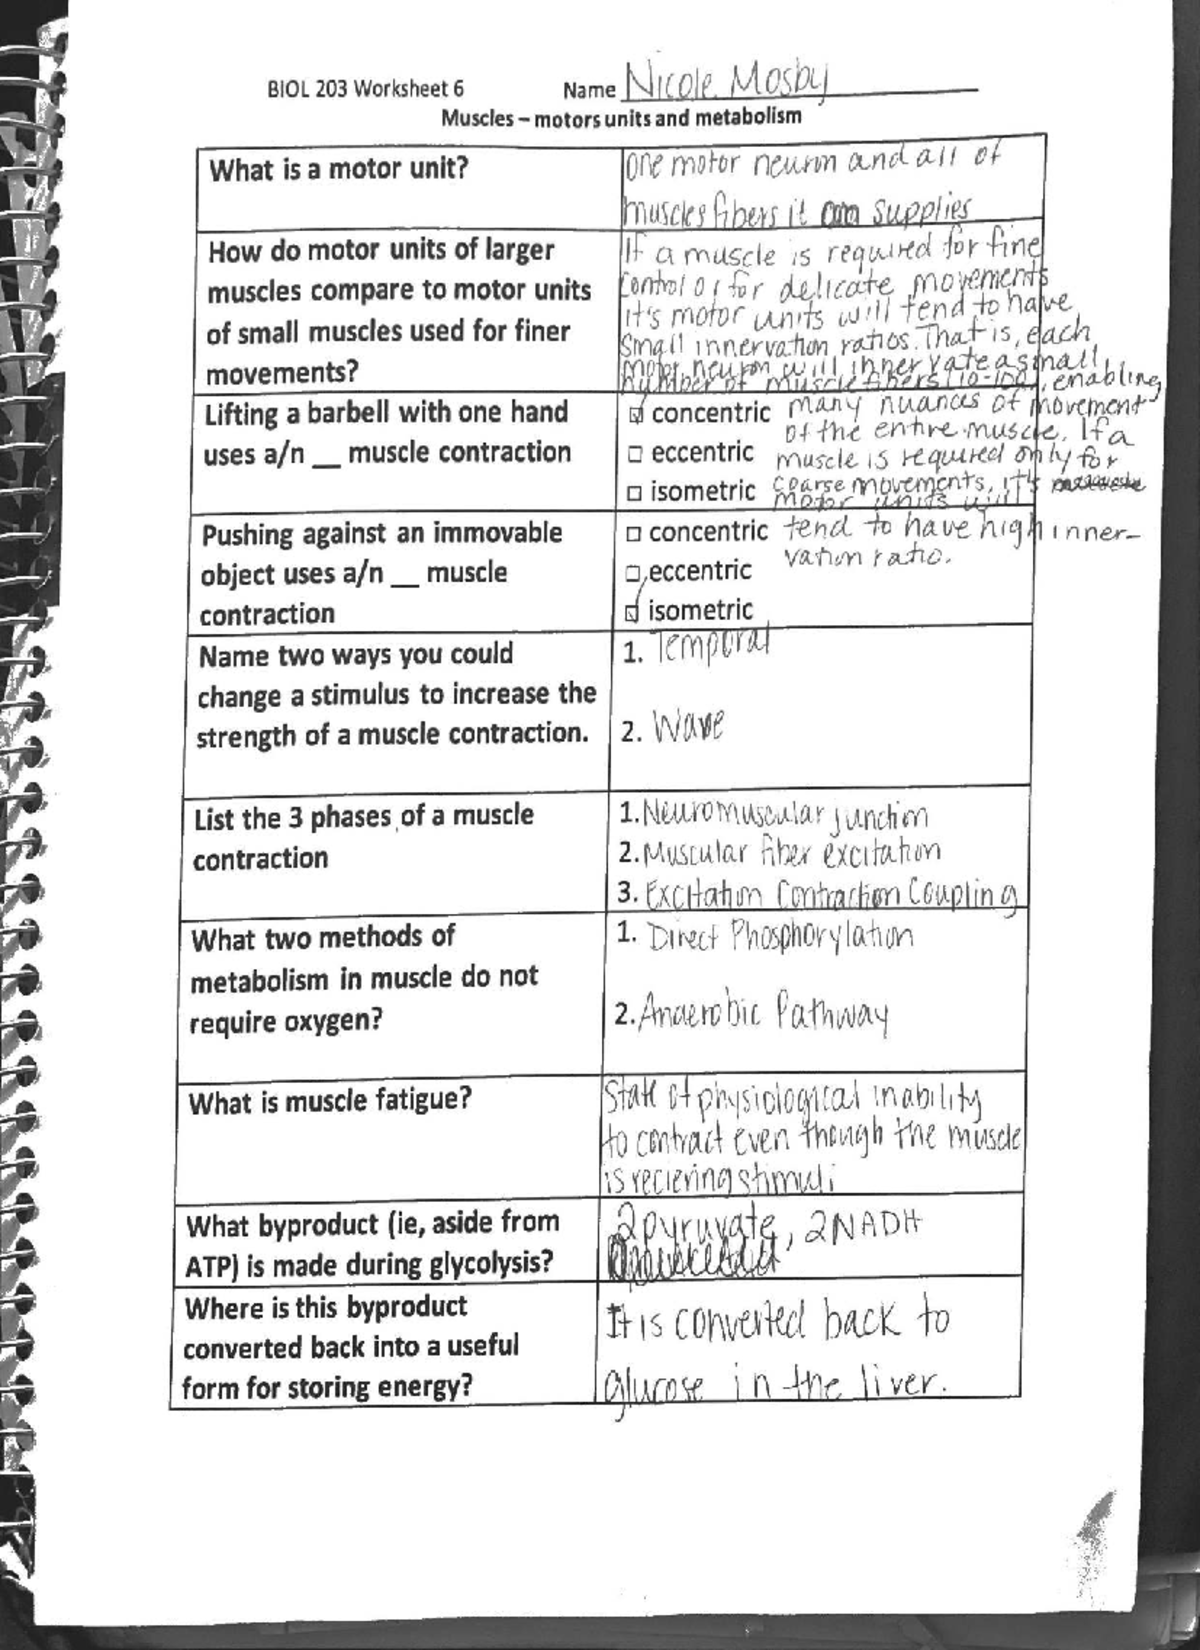 BIOL 203 Worksheet 6 Name Nicole Mosby
Muscles – motors units and metabolism
What is a motor unit?
one motor neuron and all of
muscles fibers it supplies
How do motor units of larger
muscles compare to motor units
of small muscles used for finer
movements?
If a muscle is required for fine
control or for delicate movements
it's motor units will tend to have
small innervation ratios. That is, each
motor neuron will innervate a small
number of muscle fibers (10-100), enabling
many nuances of movement
of the entire muscle. If a
muscle is required only for
coarse movements, it's
motor units will
tend to have high inner-
vation ratio.
Lifting a barbell with one hand
uses a/n __ muscle contraction
☑ concentric
☐ eccentric
☐ isometric
Pushing against an immovable
object uses a/n __ muscle
contraction
☐ concentric
☐ eccentric
☑ isometric
Name two ways you could
change a stimulus to increase the
strength of a muscle contraction.
1. Temporal
2. Wave
List the 3 phases of a muscle
contraction
1. Neuromuscular junction
2. Muscular fiber excitation
3. Excitation Contraction Coupling
What two methods of
metabolism in muscle do not
require oxygen?
1. Direct Phosphorylation
2. Anaerobic Pathway
What is muscle fatigue?
State of physiological inability
to contract even though the muscle
is reciering stimuli
What byproduct (ie, aside from
ATP) is made during glycolysis?
2 pyruvate, 2NADH
Where is this byproduct
converted back into a useful
form for storing energy?
It is converted back to
glucose in the liver.